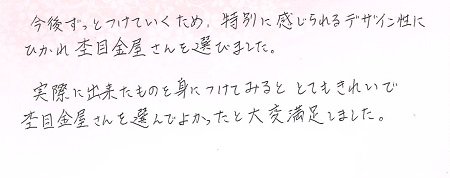 今後ずっとつけていくため、特別に感じられるデザイン性に
ひかれ杢目金屋さんを選びました。
実際に出来たものを身につけてみると とてもきれいで
杢目金屋さんを選んでよかったと大変満足しました。